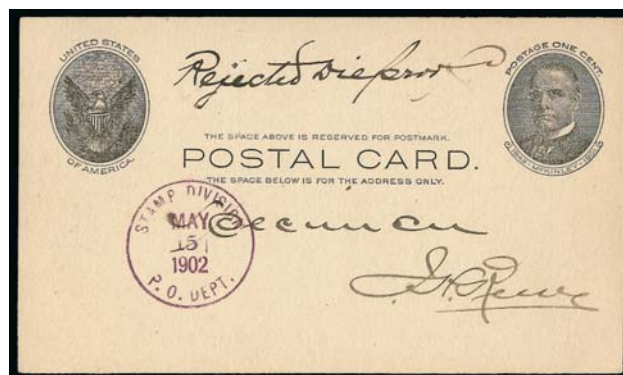 UNITED STATES
OF AMERICA.
Rejected Die proof
POSTAGE ONE CENT.
1843 · McKINLEY · 1901
THE SPACE ABOVE IS RESERVED FOR POSTMARK.
POSTAL CARD.
THE SPACE BELOW IS FOR THE ADDRESS ONLY.
STAMP DIVISION
MAY
15
1902
P. O. DEPT.